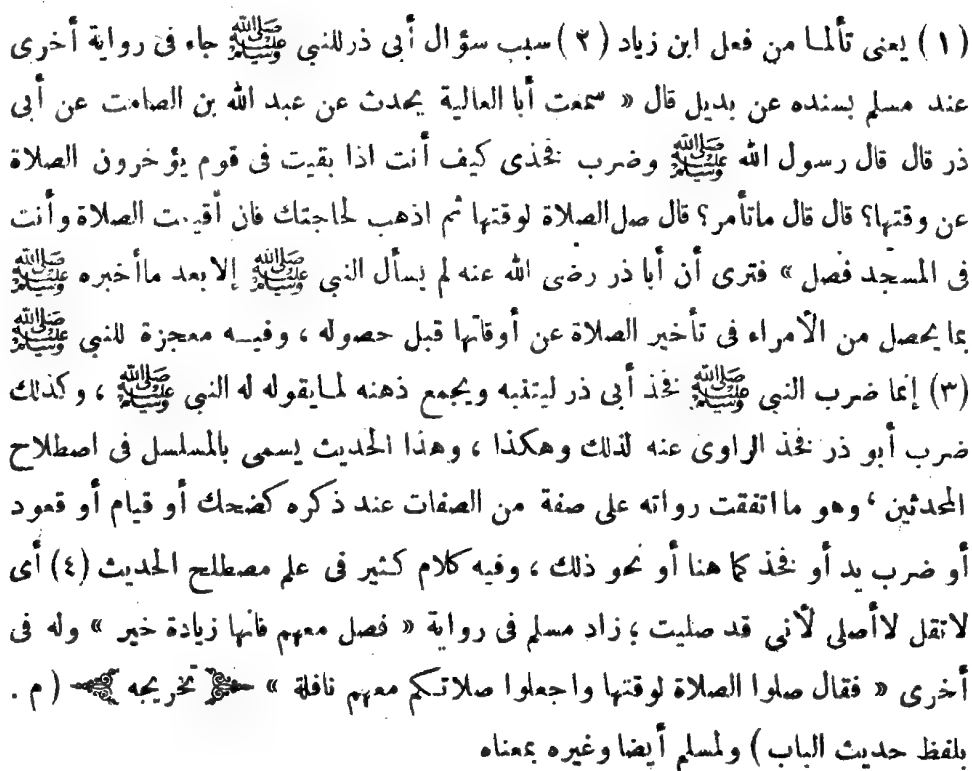 (١) يعنى تألما من فعل ابن زياد (٢) سبب سؤال أبى ذر للنبى ﷺ جاء فى رواية أخرى
عند مسلم بسنده عن بديل قال « سمعت أبا العالية يحدث عن عبد الله بن الصامت عن أبى
ذر قال قال رسول الله ﷺ وضرب فخذى كيف أنت اذا بقيت فى قوم يؤخرون الصلاة
عن وقتها؟ قال قال ماتأمر؟ قال صل الصلاة لوقتها ثم اذهب لحاجتك فان أقيمت الصلاة وأنت
فى المسجد فصل » فترى أن أبا ذر رضى الله عنه لم يسأل النبى ﷺ إلا بعد ماأخبره ﷺ
بما يحصل من الأمراء فى تأخير الصلاة عن أوقاتها قبل حصوله ، وفيـه معجزة للنبى ﷺ
(٣) إنما ضرب النبى ﷺ فخذ أبى ذر ليتنبه ويجمع ذهنه لمايقوله له النبى ﷺ ، وكذلك
ضرب أبو ذر فخذ الراوى عنه لذلك وهكذا ، وهذا الحديث يسمى بالمسلسل فى اصطلاح
المحدثين ، وهو مااتفقت رواته على صفة من الصفات عند ذكره كضحك أو قيام أو قعود
أو ضرب يد أو فخذ كما هنا أو نحو ذلك ، وفيه كلام كثير فى علم مصطلح الحديث (٤) أى
لاتقل لاأصلى لأنى قد صليت ؛ زاد مسلم فى رواية « فصل معهم فانها زيادة خير » وله فى
أخرى « فقال صلوا الصلاة لوقتها واجعلوا صلاتكم معهم نافلة » تخريجه ( م .
بلفظ حديث الباب ) ولمسلم أيضا وغيره بمعناه